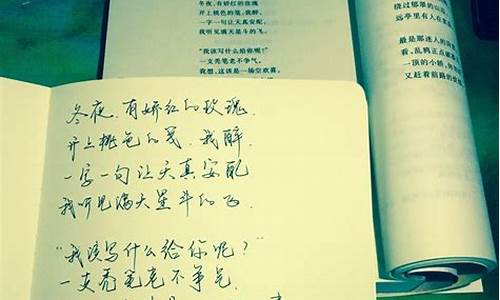 冬夜，有娇红的玫瑰
开上桃色的笺，我醉，
一字一句让天真安配，
我听见满天星斗的飞。
“我该写什么给你呢？”
一支秃笔老不争气，
我想，这该是一场空欢喜。
绕过郁翠的山
远亭里有人在
最是那迷人的
看，乱鸦正点破
一顶的小轿，
又赶着前路的
冬夜，有娇红的玫瑰，
开上桃色的笺，我醉，
一字一句让天真安配
我听见满天星斗的飞。
“我该写什么给你呢？”
一支秃笔老不争气，